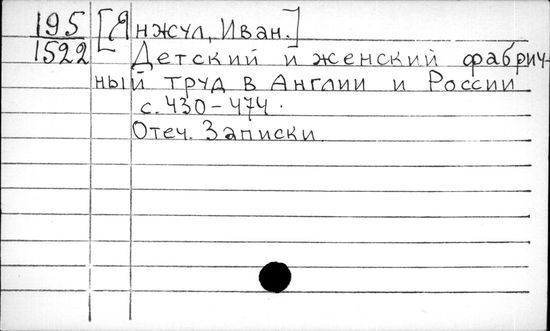 195 [Янжул, Иван.]
1522 Детский и женский фабрич-
ный труд в Англии и России
с. 430-474.
Отеч. Записки